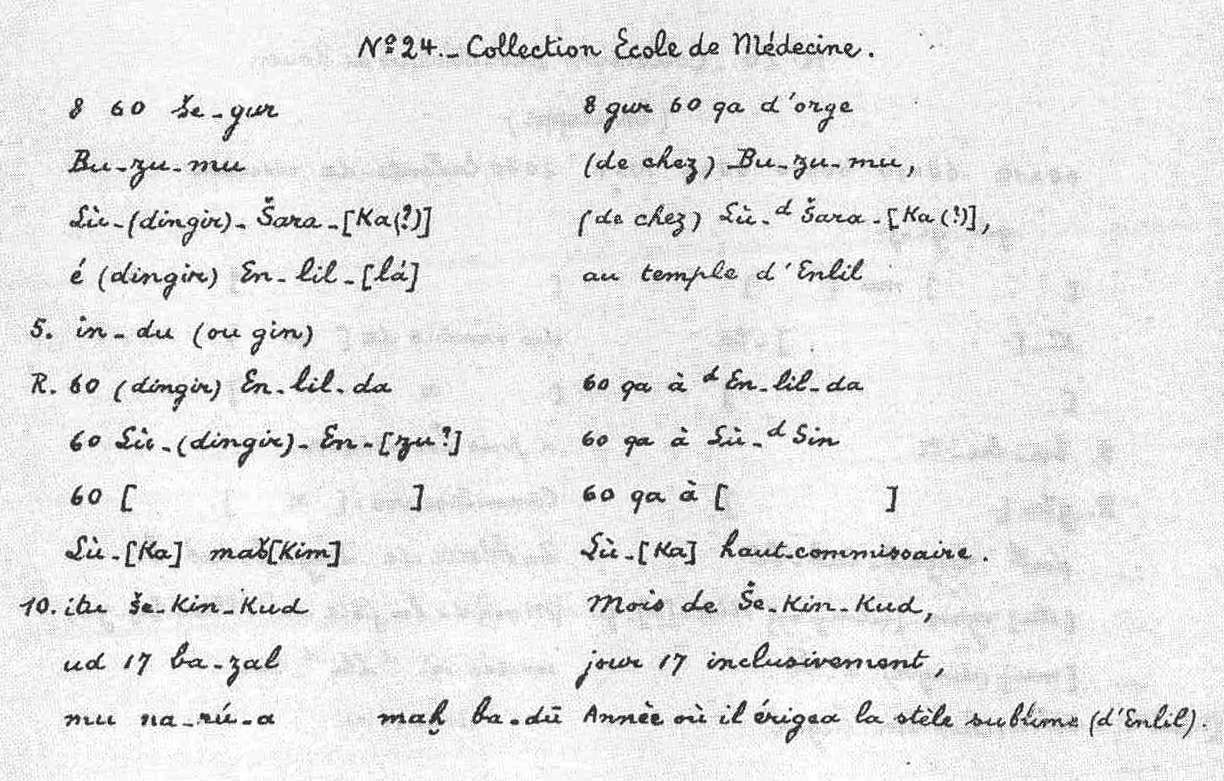 Nº 24._ Collection École de Médecine.
8 60 še-gur 8 gur 60 qa d'orge
Bu-zu-mu (de chez) Bu-zu-mu,
Lù-(dingir)-Šara-[Ka(?)] (de chez) Lù-ᵈ Šara-[Ka(?)],
é (dingir) En-lil-[lá] au temple d'Enlil
5. in-du (ou gin)
R. 60 (dingir) En-lil-da 60 qa à ᵈ En-lil-da
60 Lù-(dingir)-En-[zu?] 60 qa à Lù-ᵈ Sin
60 [ ] 60 qa à [ ]
Lù-[Ka] maš[Kim] Lù-[Ka] haut-commissaire.
10. itu še-Kin-Kud Mois de Še-Kin-Kud,
ud 17 ba-zal jour 17 inclusivement,
mu na-rú-a maḫ ba-dū Annèe où il érigea la stèle sublime (d'Enlil).